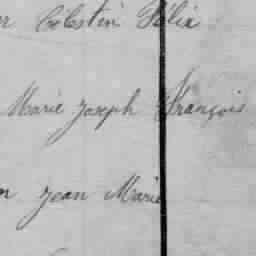 Célestin Félix
Marie Joseph François
Jean Marie